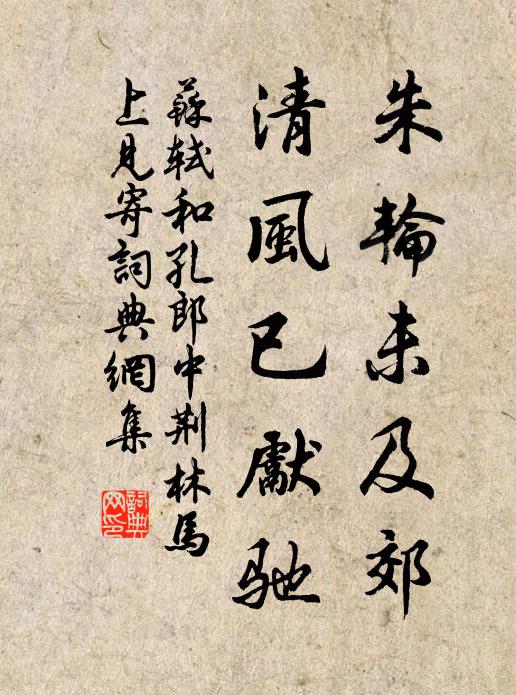 朱輪未及郊
清風已獻馳
蘇軾和孔郎中荆林馬
上見寄詞典網集
詞典网印